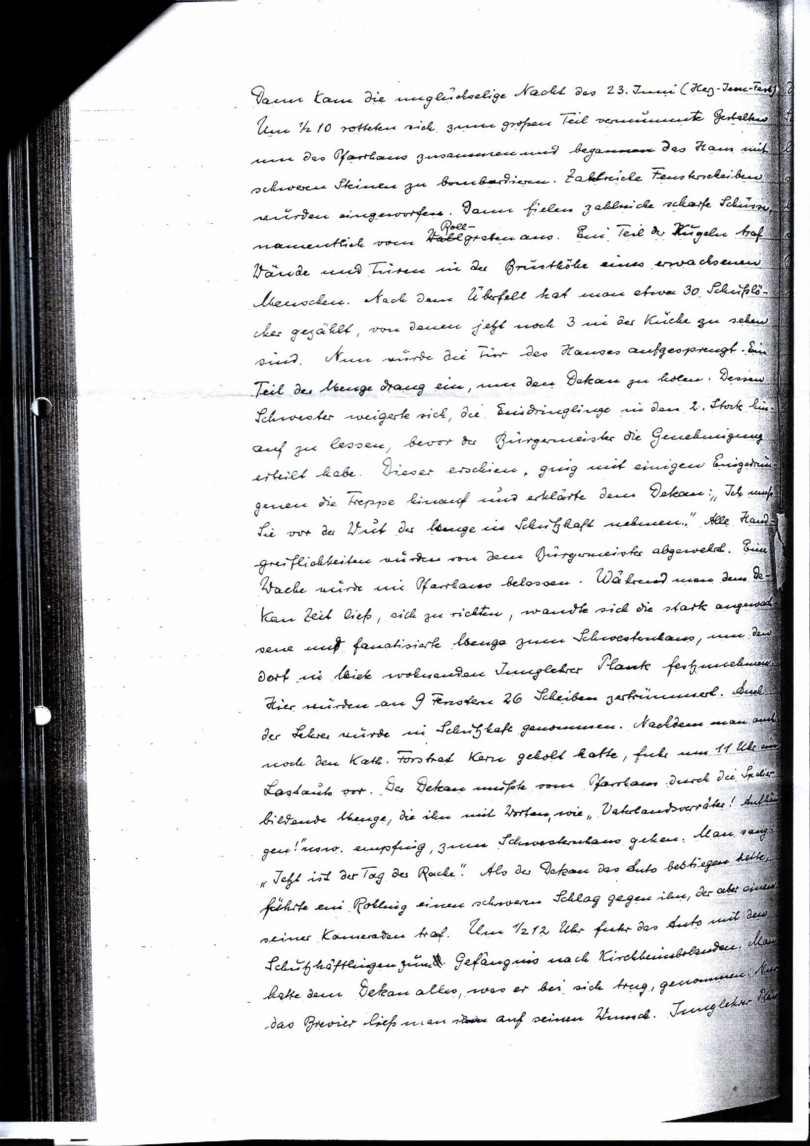 Dann kam die unglückselige Nacht des 23. Juni (Herz-Jesu-Fest)
Um 1/2 10 rotteten sich zum großen Teil vermummte Gestalten
um das Pfarrhaus zusammen und begannen das Haus mit
schweren Steinen zu bombardieren. Zahlreiche Fensterscheiben
wurden eingeworfen. Dann fielen zahlreiche scharfe Schüsse,
Roll-
namentlich vom graben aus. Ein Teil der Kugeln traf
Wände und Türen in der Brusthöhe eines erwachsenen
Menschen. Nach dem Überfall hat man etwa 30 Schußlö-
cher gezählt, von denen jetzt noch 3 in der Küche zu sehen
sind. Nun wurde die Tür des Hauses aufgesprengt. Ein
Teil der Menge drang ein, um den Dekan zu holen. Dessen
Schwester weigerte sich, die Eindringlinge in den 2. Stock hin-
auf zu lassen, bevor der Bürgermeister die Genehmigung
erteilt habe. Dieser erschien, ging mit einigen Eingedrun-
genen die Treppe hinauf und erklärte dem Dekan: „Ich muß
Sie vor der Wut der Menge in Schutzhaft nehmen." Alle Hand-
greiflichkeiten wurden von dem Bürgermeister abgewehrt. Eine
Wache wurde im Pfarrhaus belassen. Während man dem De-
kan Zeit ließ, sich zu richten, wandte sich die stark angewach-
sene und fanatisierte Menge zum Schwesternhaus, um den
dort in Miete wohnenden Junglehrer Plank festzunehmen.
Hier wurden an 9 Fenstern 26 Scheiben zertrümmert. Auch
der Lehrer wurde in Schutzhaft genommen. Nachdem man auch
noch den Kath. Forstrat Kern geholt hatte, fuhr um 11 Uhr ein
Lastauto vor. Der Dekan mußte vom Pfarrhaus durch die Spalier
bildende Menge, die ihn mit Worten, wie „Vaterlandsverräter! Aufhän-
gen!" usw. empfing, zum Schwesternhaus gehen. Man sang:
„Jetzt ist der Tag der Rache". Als der Dekan das Auto bestiegen hatte,
führte ein Rohling einen schweren Schlag gegen ihn, der aber einen
seiner Kameraden traf. Um 1/2 12 Uhr fuhr das Auto mit den
Schutzhäftlingen zum Gefängnis nach Kirchheimbolanden. Man
hatte dem Dekan alles, was er bei sich trug, genommen. Nur
das Brevier ließ man auf seinen Wunsch. Junglehrer Plank